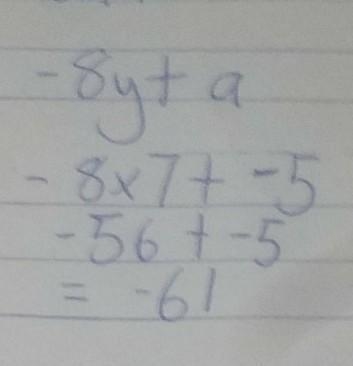 -8y+ a
- 8x7+ -5
-56 + -5
= -61